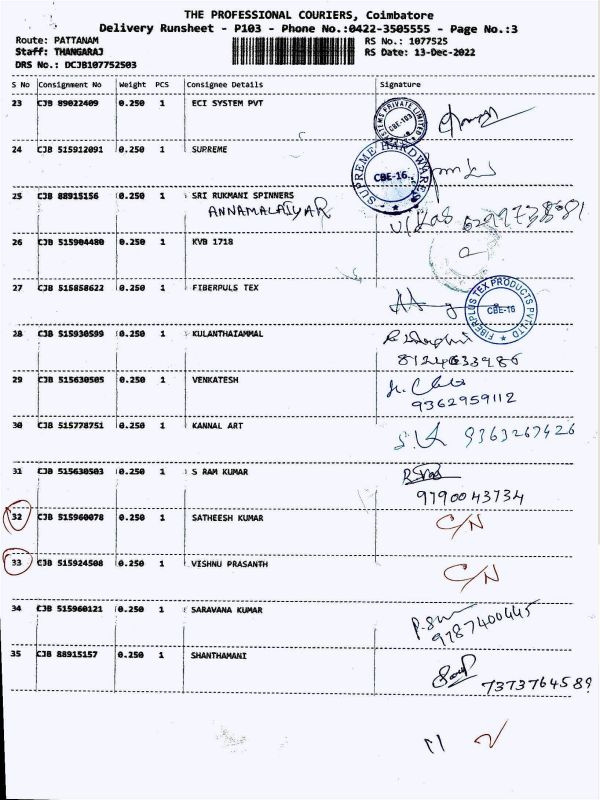 THE PROFESSIONAL COURIERS, Coimbatore
Delivery Runsheet - P103 - Phone No.:0422-3505555 - Page No.:3
Route: PATTANAM RS No.: 1077525
Staff: THANGARAJ RS Date: 13-Dec-2022
DRS No.: DCJB107752503
S No Consignment No Weight PCS Consignee Details Signature
23 CJB 89022409 0.250 1 ECI SYSTEM PVT
CBE-103
24 CJB 515912091 0.250 1 SUPREME
SUPREME HARDWARES CBE-16
25 CJB 88915156 0.250 1 SRI RUKMANI SPINNERS
ANNAMALAIYAR
26 CJB 515904480 0.250 1 KVB 1718
27 CJB 515858622 0.250 1 FIBERPULS TEX
FIBERPLUS TEX PRODUCTS PVT LTD CBE-16
28 CJB 515930599 0.250 1 KULANTHAIAMMAL
8124633986
29 CJB 515630505 0.250 1 VENKATESH
9362959112
30 CJB 515778751 0.250 1 KANNAL ART 9363267426
31 CJB 515630503 0.250 1 S RAM KUMAR
9790043734
32 CJB 515960078 0.250 1 SATHEESH KUMAR C/N
33 CJB 515924508 0.250 1 VISHNU PRASANTH C/N
34 CJB 515960121 0.250 1 SARAVANA KUMAR
9787400445
35 CJB 88915157 0.250 1 SHANTHAMANI
7373764589